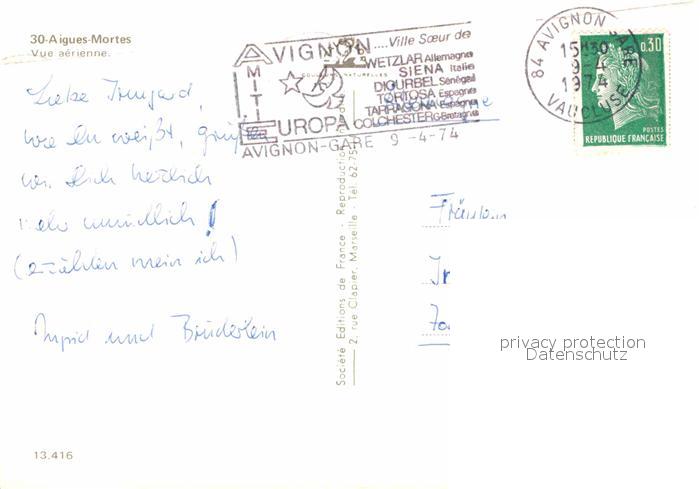 30-Aigues-Mortes
Vue aérienne.
AVIGNON ....Ville Sœur de
WETZLAR Allemagne
SIENA Italie
DIOURBEL Sénégal
TORTOSA Espagne
TARRAGONA Espagne
COLCHESTER G-Bretagne
AMITIE
EUROPA
AVIGNON-GARE 9 -4-74
84 AVIGNON GARE
15H30
9-4
1974
VAUCLUSE
0.30
POSTES
REPUBLIQUE FRANÇAISE
Liebe Irmgard,
wie Du weißt, grüßen
wir Dich herzlich
mehr mündlich!
(erzählen mein ich)
Ingrid und Brüderlein
Société Editions de France - Reproduction
2, rue Clapier, Marseille - Tél. 62-75
Fräulein
privacy protection
Datenschutz
13.416